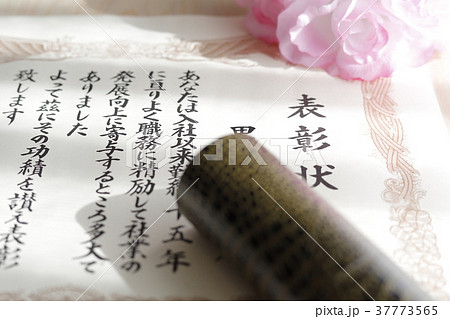 表彰状
あなたは入社以来勤続十五年
に亘りよく職務に精励して社業の
発展向上に寄与するところ多大で
ありました
よって茲にその功績を讃え表彰
致します
pixta.jp - 37773565